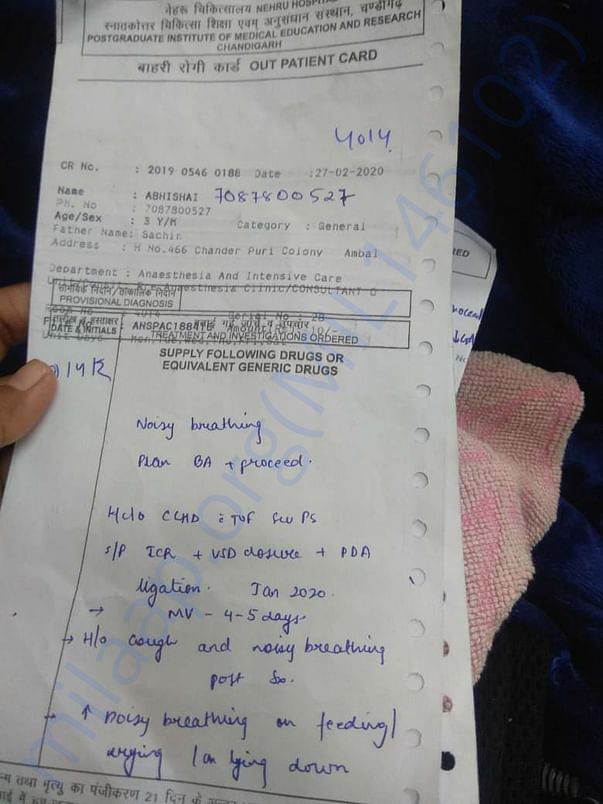 नेहरू चिकित्सालय NEHRU HOSPIT
स्नातकोत्तर चिकित्सा शिक्षा एवम् अनुसंधान संस्थान, चण्डीगढ़
POSTGRADUATE INSTITUTE OF MEDICAL EDUCATION AND RESEARCH
CHANDIGARH
बाहरी रोगी कार्ड OUT PATIENT CARD
4014
CR No. : 2019 0546 0188 Date :27-02-2020
Name : ABHISHAI 7087800527
Ph. No : 7087800527
Age/Sex : 3 Y/M Category : General
Father Name: Sachin
Address : H No.466 Chander Puri Colony Ambal
Department : Anaesthesia And Intensive Care
Anaesthesia Clinic/CONSULTANT
PROVISIONAL DIAGNOSIS
Serial No : 28
DATE & INITIALS
TREATMENT AND INVESTIGATIONS ORDERED
SUPPLY FOLLOWING DRUGS OR
EQUIVALENT GENERIC DRUGS
14K
Noisy breathing
Plan GA + proceed.
H/o CCHD c̄ TOF sev PS
s/p ICR + VSD closure + PDA
ligation. Jan 2020.
→ MV - 4-5 days
→ H/o cough and noisy breathing
post Sx.
→ ↑ noisy breathing on feeding/
crying / on lying down
तथा मृत्यु का पंजीकरण 21 दिन के
milaap.org(MIL146102)